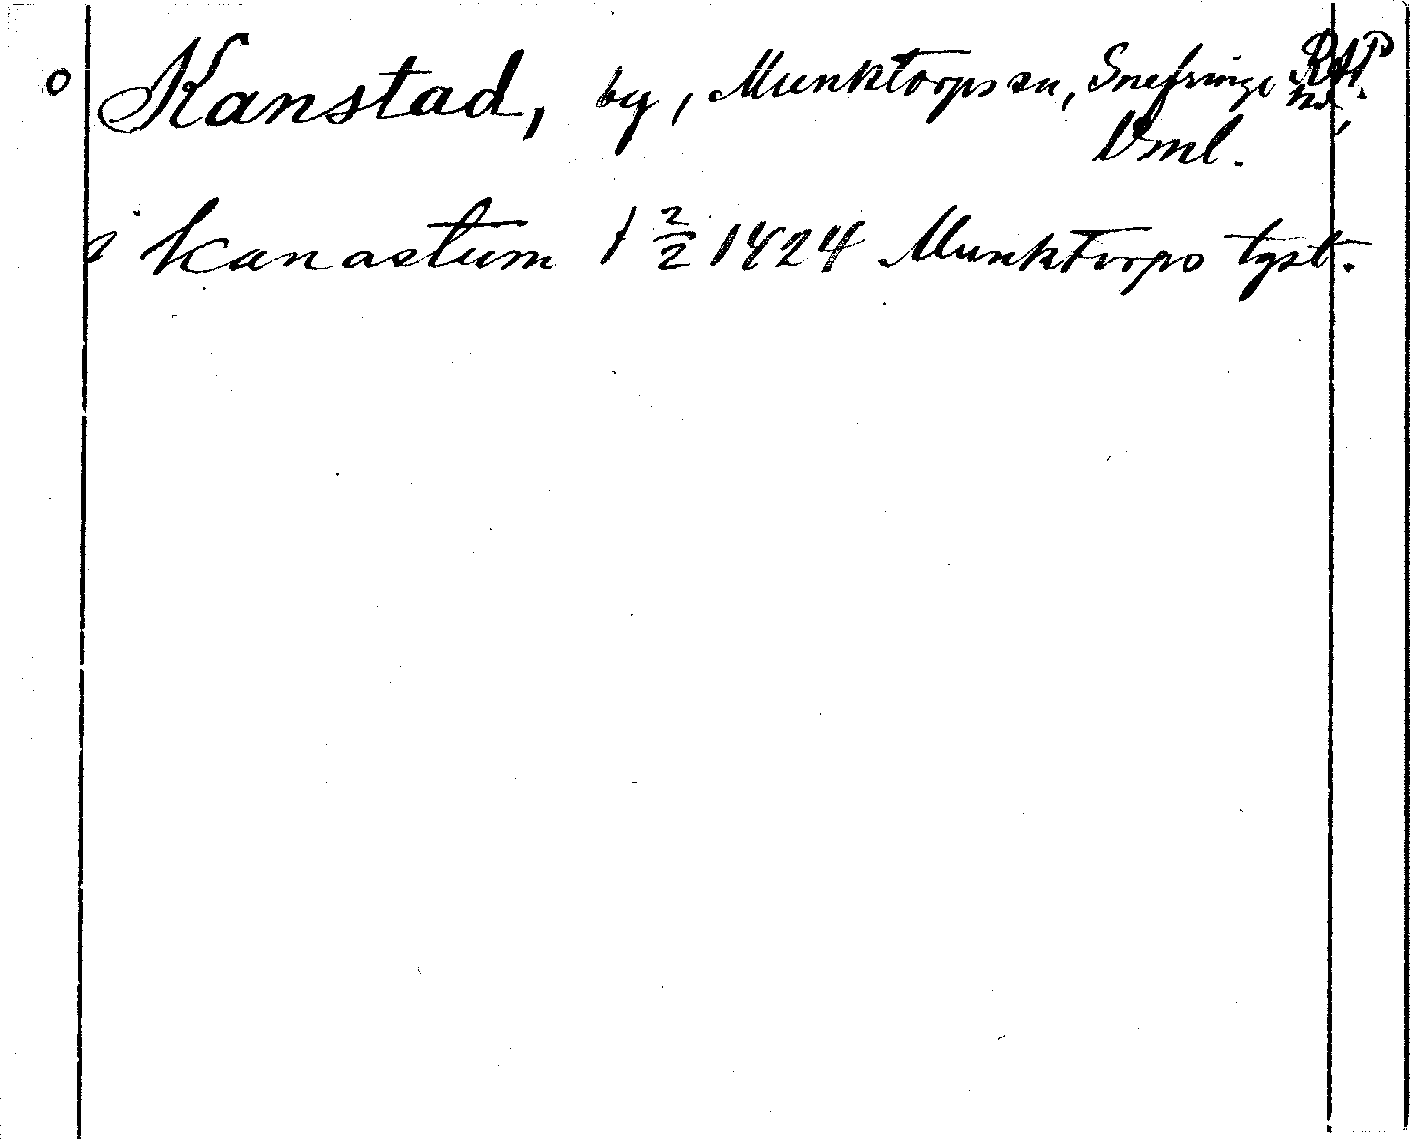 Kanstad, by, Munktorps sn, Snefringe hd,
Vml.
i Kanastum 1 2/2 1424 Munktorps tgst.